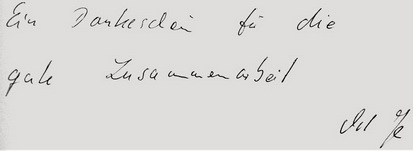 Ein Dankeschön für die
gute Zusammenarbeit